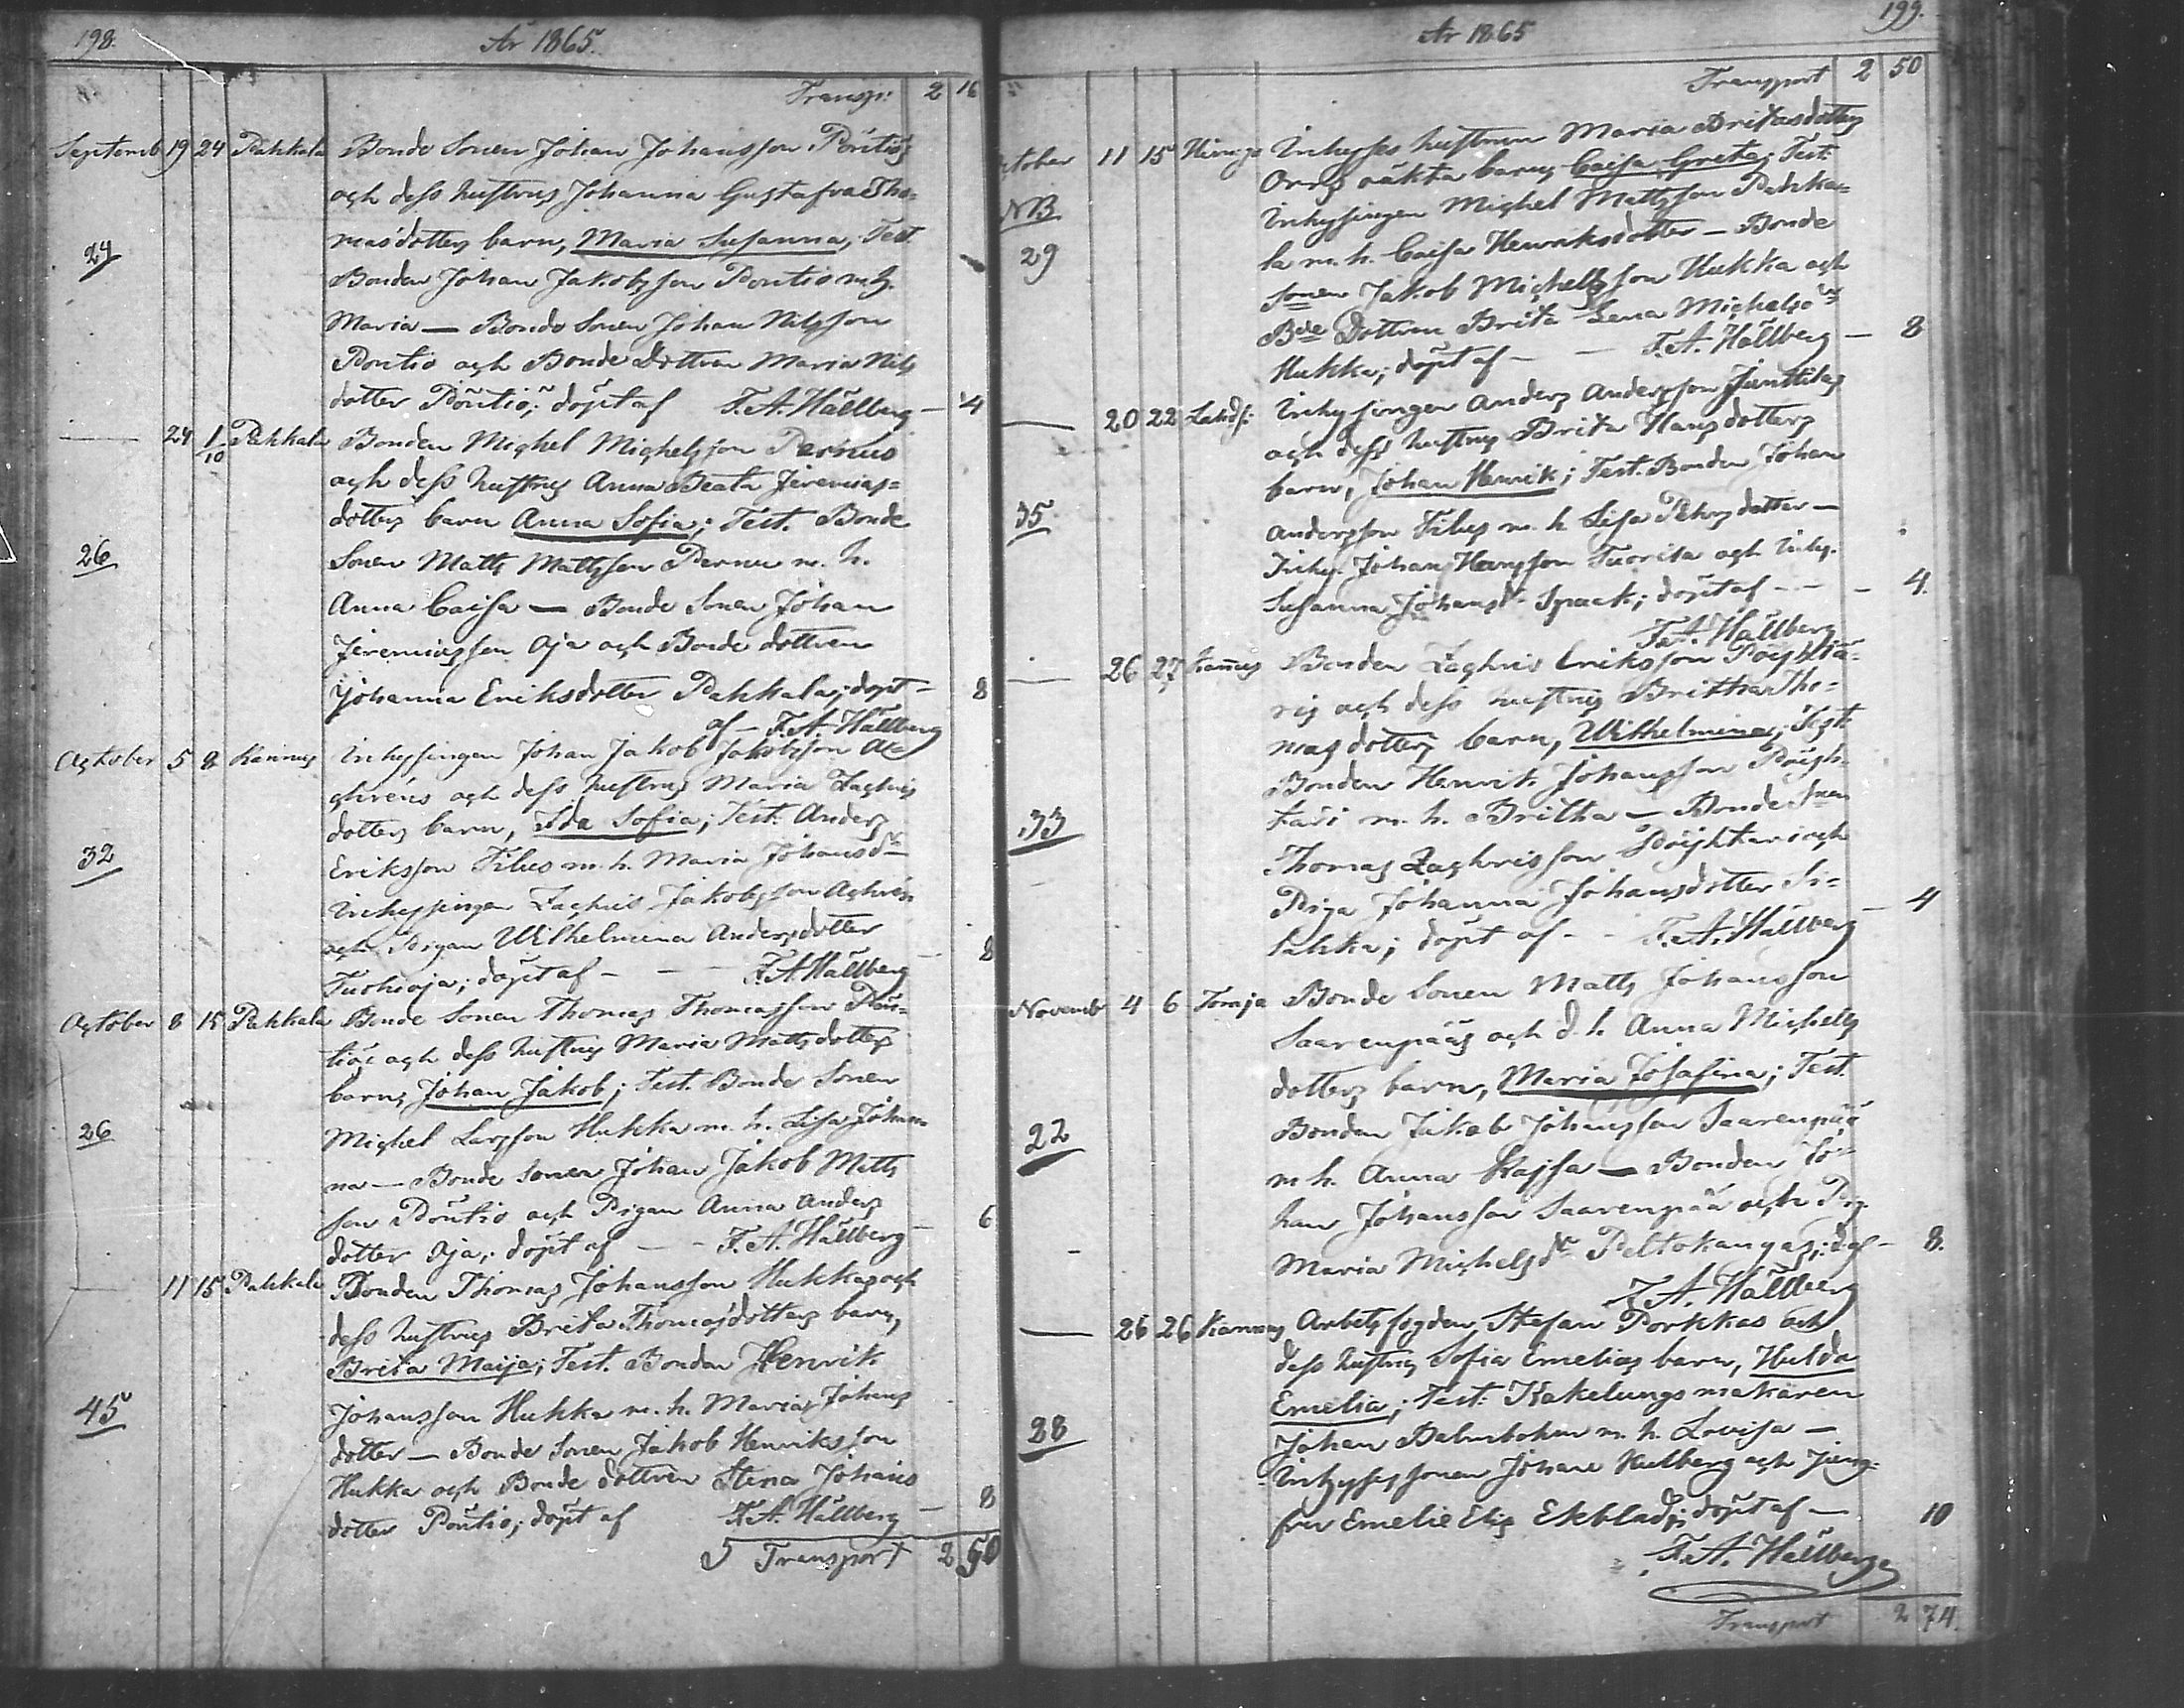 198.
År 1865.
Transp: 2 16
Septemb 19 24 Pahkala Bonde Sonen Johan Johansson Pöntiös
och dess hustrus Johanna Gustafva Tho-
masdotters barn, Maria Susanna; Test.
24
Bonden Johan Jakobsson Pöntiö m. h.
Maria — Bonde Sonen Johan Nilsson
Pöntiö och Bonde Dottren Maria Nils
dotter Pöntiö; döpt af F. A. Hällberg — 4
— 24 1/10 Pahkala Bonden Michel Michelsson Pernus
och dess hustrus Anna Beata Jeremias-
dotters barn Anna Sofia; Test. Bonde
26
Sonen Matts Mattsson Pernu m. h.
Anna Caisa — Bonde Sonen Johan
Jeremiasson Oja och Bonde dottren
Johanna Eriksdotter Pahkala; döpt — 8
af — F. A. Hällberg
October 5 8 Kannus Inhysingen Johan Jakob Jakobsson
och dess hustrus Maria Zachris
dotters barn, Ida Sofia; Test. Anders
32
Eriksson Filus m. h. Maria Johansdr —
Inhysingen Zachris Jakobsson
och Pigan Wilhelmina Andersdotter
döpt af — — — F. A. Hällberg — 8
October 8 15 Pahkala Bonde Sonen Thomas Thomasson Pön-
tiös och dess hustrus Maria Mattsdotters
barn, Johan Jakob; Test. Bonde Sonen
26
Michel Larsson Hukka m. h. Lisa Johan
na — Bonde Sonen Johan Jakob Matts
son Pöntiö och Pigan Anna Anders
dotter Oja; döpt af — — F. A. Hällberg — 6
— 11 15 Pahkala Bonden Thomas Johansson Hukkas och
dess hustrus Brita Thomasdotters barn,
Brita Maija; Test. Bonden Henrik
45
Johansson Hukka m. h. Maria Johans
dotter — Bonde Sonen Jakob Henriksson
Hukka och Bonde dottren Stina Johans
dotter Pöntiö; döpt af F. A. Hällberg — 8
Transport 2 50
199.
År 1865
Transport 2 50
October 11 15 Inhyses hustrun Maria Britasdotters
oäkta barn, Caisa Greta; Test.
NB
Inhysingen Michel Mattsson Pahka-
29
la m. h. Caisa Henriksdotter — Bonde
Sonen Jakob Michelsson Hukka och
Bde Dottren Brita Lena Michelsdr
Hukka; döpt af — — F. A. Hällberg — 8
— 20 22 Inhysingen Anders Andersson Junttilas
och dess hustrus Brita Hansdotters
barn, Johan Henrik; Test. Bonden Johan
35
Andersson Filus m. h. Lisa Pehrsdotter —
Inhys. Johan Hansson Tuorila och Inhys.
Susanna Johansdr Spack; döpt af — — 4.
F. A. Hällberg
— 26 27 Kannus Bonden Zachris Eriksson Pöyhtä-
ris och dess hustrus Britha Tho-
mas dotters barn, Wilhelmina; Test.
Bonden Henrik Johansson Pöyh-
33
täri m. h. Britha — Bonde Sonen
Thomas Zachrisson Pöyhtäri och
Piga Johanna Johansdotter Si-
döpt af — — F. A. Hällberg — 4
Novemb 4 6 Tomja Bonde Sonen Matts Johansson
Saarenpääs och d. h. Anna Michels
dotters barn, Maria Josafina; Test.
22
Bonden Jakob Johansson Saarenpää
m h. Anna Kajsa — Bonden Jo-
han Johansson Saarenpää och Pig.
Maria Michelsdr Peltokangas; d. af — 8.
F. A. Hällberg
— 26 26 Kannus Arbetsfogden Stefan Porkkas och
dess hustrus Sofia Emelias barn, Hulda
Emelia; Test. Kakelungsmakaren
28
Johan Dalmbohm m. h. Lovisa —
Inhysessonen Johan Hulberg och Jung-
frun Emelie Elis Ekblad; döpt af — 10
F. A. Hällberg
Transport 2 74.